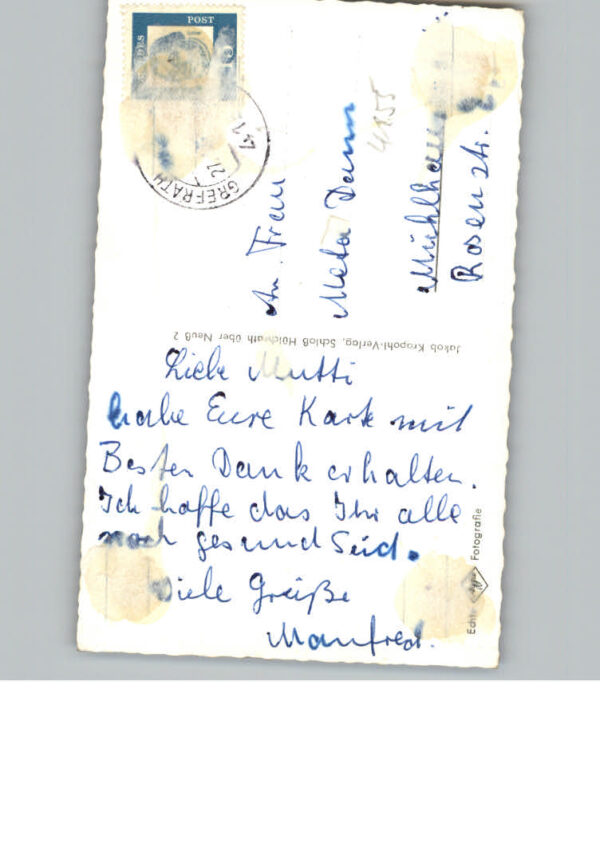 DES
POST
GREFRATH
21
41
4155
An. Frau
Meta Damm
Mühlhau
Rosenstr.
Jakob Krapohl-Verlag, Schloß Hülchrath über Neuß 2
Liebe Mutti
habe Eure Karte mit
Besten Dank erhalten.
Ich hoffe das Ihr alle
noch gesund Seid.
Viele Grüße
Manfred.
Echte Agfa Fotografie